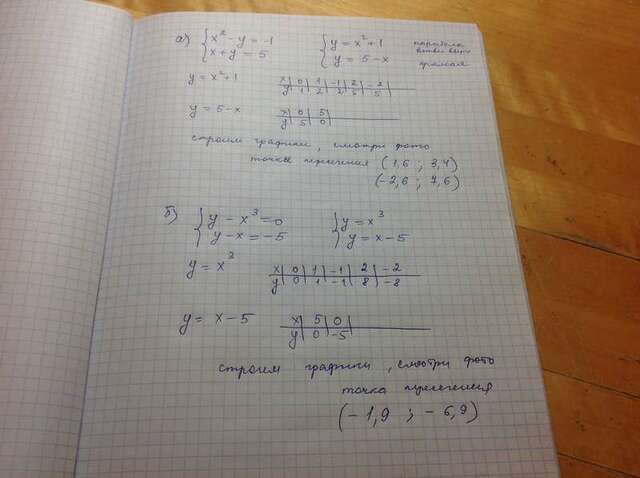 а) { x² - y = -1    { y = x² + 1    парабола
x + y = 5    y = 5 - x    ветви вверх
прямая
y = x² + 1    x | 0 | 1 | -1 | 2 | -2
y | 1 | 2 | 2 | 5 | 5
y = 5 - x    x | 0 | 5
y | 5 | 0
строим графики, смотри фото
точки пересечения (1,6 ; 3,4)
(-2,6 ; 7,6)
б) { y - x³ = 0    { y = x³
y - x = -5    y = x - 5
y = x³    x | 0 | 1 | -1 | 2 | -2
y | 0 | 1 | -1 | 8 | -8
y = x - 5    x | 5 | 0
y | 0 | -5
строим графики, смотри фото
точка пересечения
(-1,9 ; -6,9)